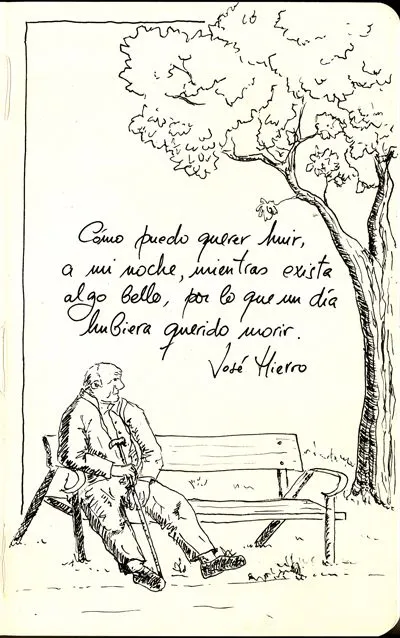 Cómo puedo querer huir,
a mi noche, mientras exista
algo bello, por lo que un día
hubiera querido morir.
José Hierro